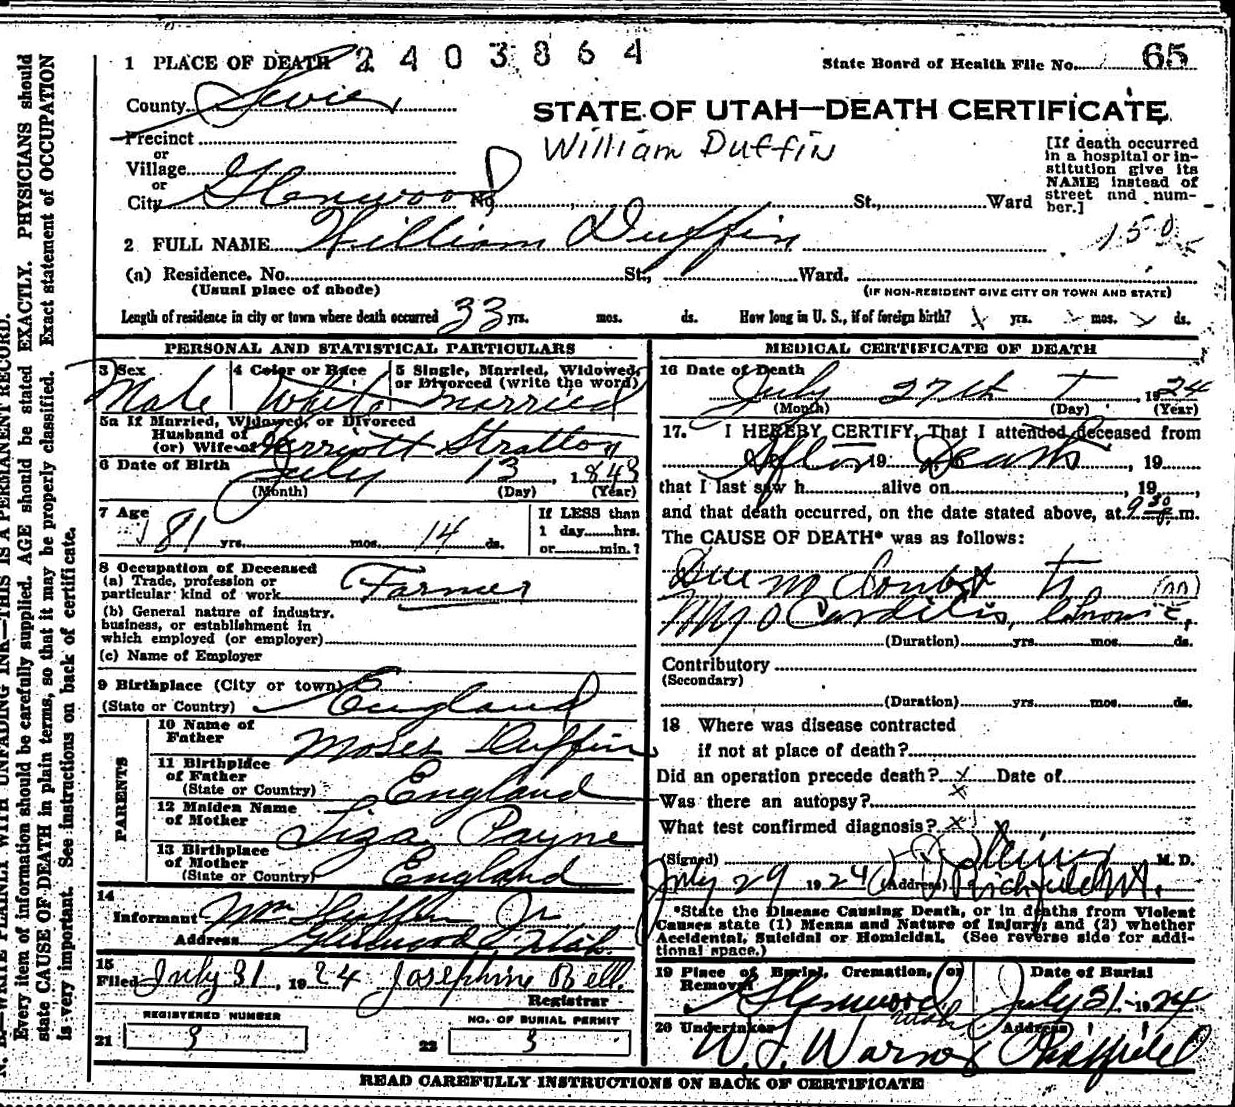 1 PLACE OF DEATH 2403864
State Board of Health File No. 65
County Sevier
STATE OF UTAH—DEATH CERTIFICATE
William Duffin
Precinct
or
Village
or
City Glenwood No. St., Ward
[If death occurred in a hospital or institution give its NAME instead of street and number.]
2 FULL NAME William Duffin
150
(a) Residence. No. St., Ward.
(Usual place of abode) (IF NON-RESIDENT GIVE CITY OR TOWN AND STATE)
Length of residence in city or town where death occurred 33 yrs. mos. ds. How long in U. S., if of foreign birth? yrs. mos. ds.
PERSONAL AND STATISTICAL PARTICULARS
3 Sex 4 Color or Race 5 Single, Married, Widowed, or Divorced (write the word)
Male White married
5a If Married, Widowed, or Divorced
Husband of
(or) Wife of Harriott Stratton
6 Date of Birth July 13, 1843
(Month) (Day) (Year)
7 Age If LESS than
81 yrs. mos. 14 ds. 1 day hrs.
or min.?
8 Occupation of Deceased
(a) Trade, profession or
particular kind of work Farmer
(b) General nature of industry.
business, or establishment in
which employed (or employer)
(c) Name of Employer
9 Birthplace (City or town)
(State or Country) England
PARENTS
10 Name of
Father Moses Duffin
11 Birthplace
of Father
(State or Country) England
12 Maiden Name
of Mother Liza Payne
13 Birthplace
of Mother
(State or Country) England
14
Informant Wm Duffin Jr
Address Glenwood Utah.
15
Filed July 31, 1924 Josephine Bell.
Registrar
REGISTERED NUMBER NO. OF BURIAL PERMIT
21 3 22 3
MEDICAL CERTIFICATE OF DEATH
16 Date of Death
July 27th 1924
(Month) (Day) (Year)
17. I HEREBY CERTIFY, That I attended deceased from
After 19 Death, 19
that I last saw h alive on , 19 ,
and that death occurred, on the date stated above, at 9 30 P. m.
The CAUSE OF DEATH* was as follows:
Due no doubt to
Myo Carditis, chronic,
(Duration) yrs. mos. ds.
Contributory
(Secondary)
(Duration) yrs. mos. ds.
18 Where was disease contracted
if not at place of death?
Did an operation precede death? x Date of
Was there an autopsy? x
What test confirmed diagnosis? x
(Signed) M. D.
July 29 1924 (Address) Richfield Ut.
*State the Disease Causing Death, or in deaths from Violent
Causes state (1) Means and Nature of Injury; and (2) whether
Accidental, Suicidal or Homicidal. (See reverse side for addi-
tional space.)
19 Place of Burial, Cremation, or Date of Burial
Removal Glenwood Utah July 31-1924
20 Undertaker Address
W. I. Warnock Richfield
READ CAREFULLY INSTRUCTIONS ON BACK OF CERTIFICATE
N. B.—WRITE PLAINLY WITH UNFADING INK—THIS IS A PERMANENT RECORD.
Every item of information should be carefully supplied. AGE should be stated EXACTLY. PHYSICIANS should
state CAUSE OF DEATH in plain terms, so that it may be properly classified. Exact statement of OCCUPATION
is very important. See instructions on back of certificate.